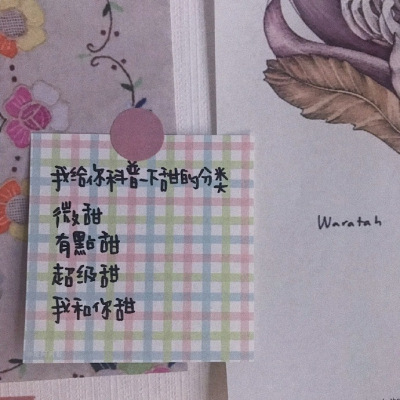 我给你科普一下甜的分类
微甜
有點甜
超级甜
我和你甜
Waratah